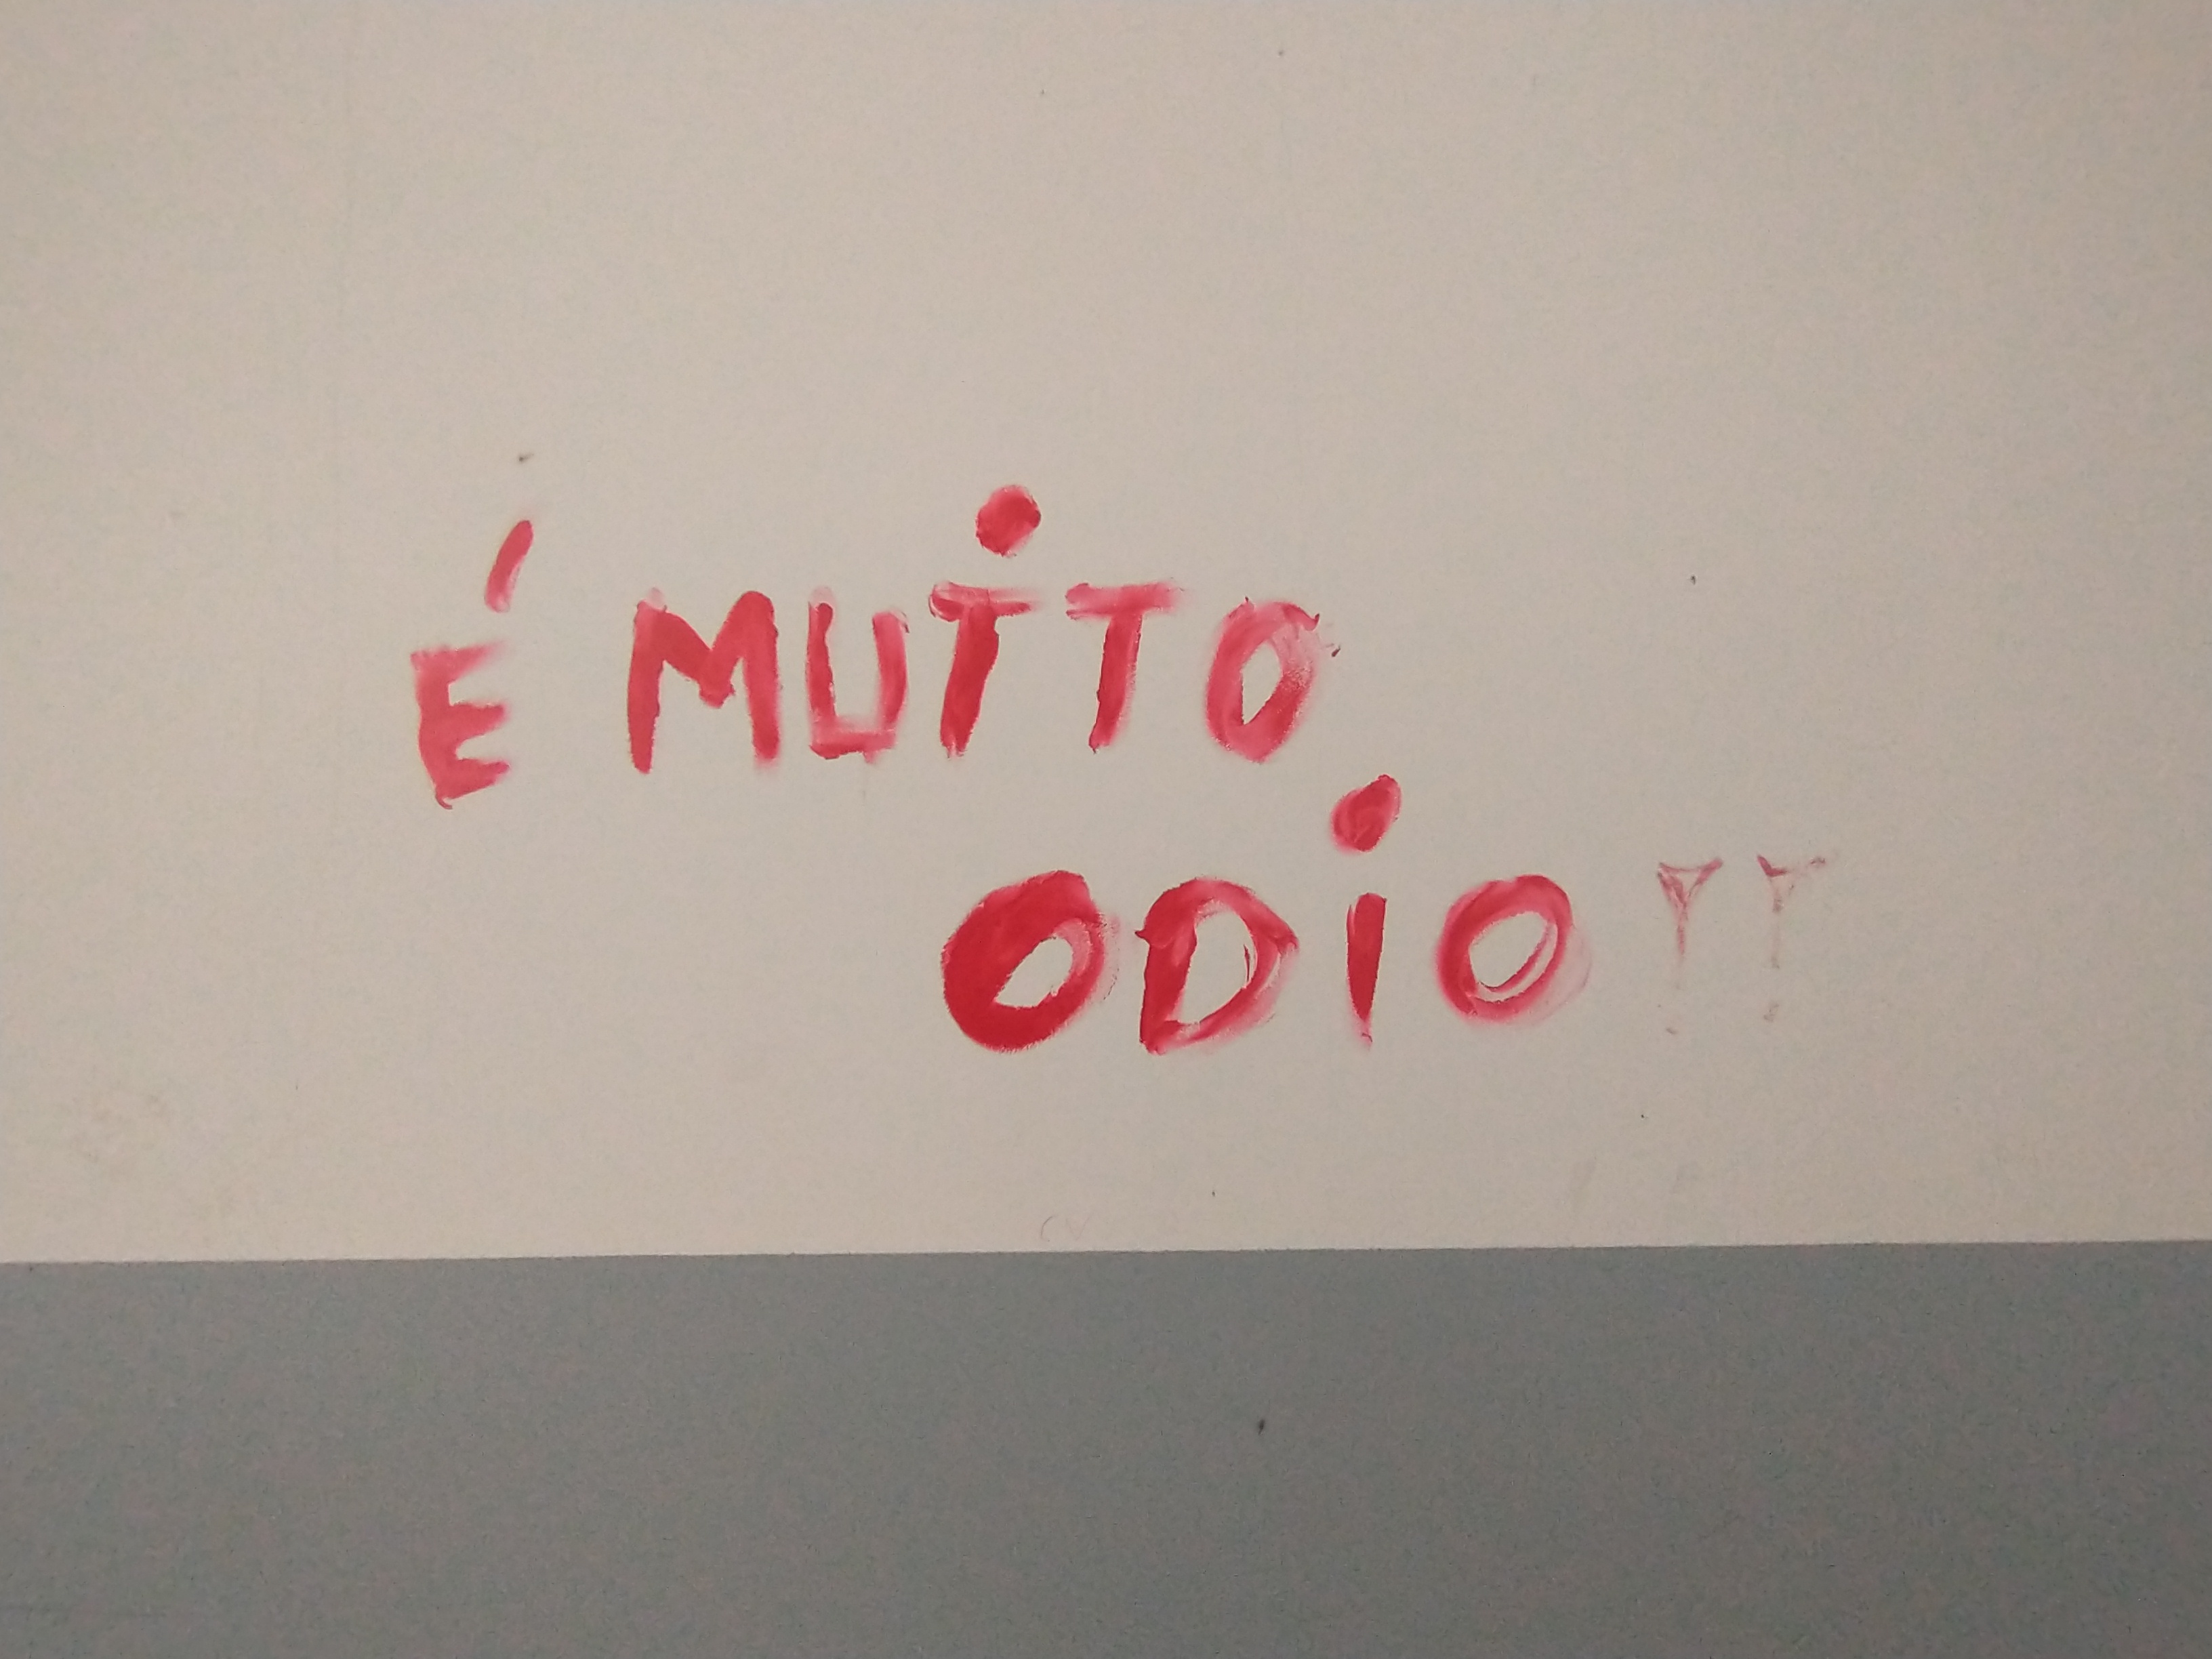 É MUITO
ODIO!!